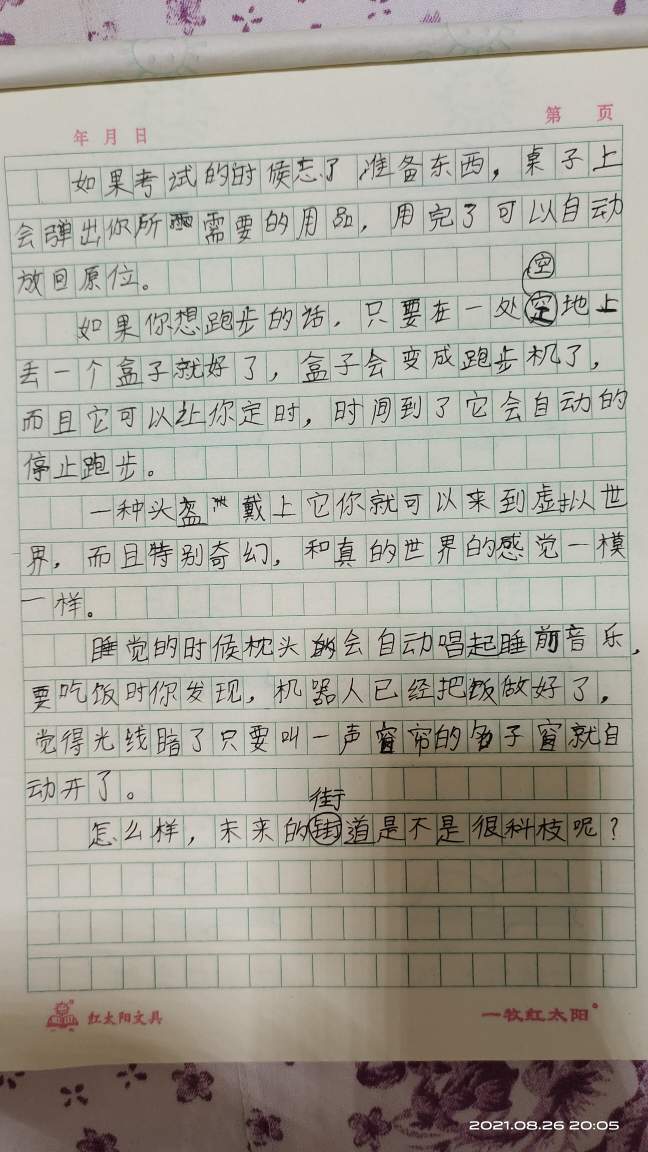 年 月 日
第 页
如果考试的时候忘了准备东西，桌子上
会弹出你所需要的用品，用完了可以自动
放回原位。
空
如果你想跑步的话，只要在一处空地上
丢一个盒子就好了，盒子会变成跑步机了，
而且它可以让你定时，时间到了它会自动的
停止跑步。
一种头盔 戴上它你就可以来到虚拟世
界，而且特别奇幻，和真的世界的感觉一模
一样。
睡觉的时候枕头会自动唱起睡前音乐，
要吃饭时你发现，机器人已经把饭做好了，
觉得光线暗了只要叫一声窗帘的名子窗就自
动开了。
街
怎么样，未来的街道是不是很科枝呢？
红太阳文具
一牧红太阳
2021.08.26 20:05